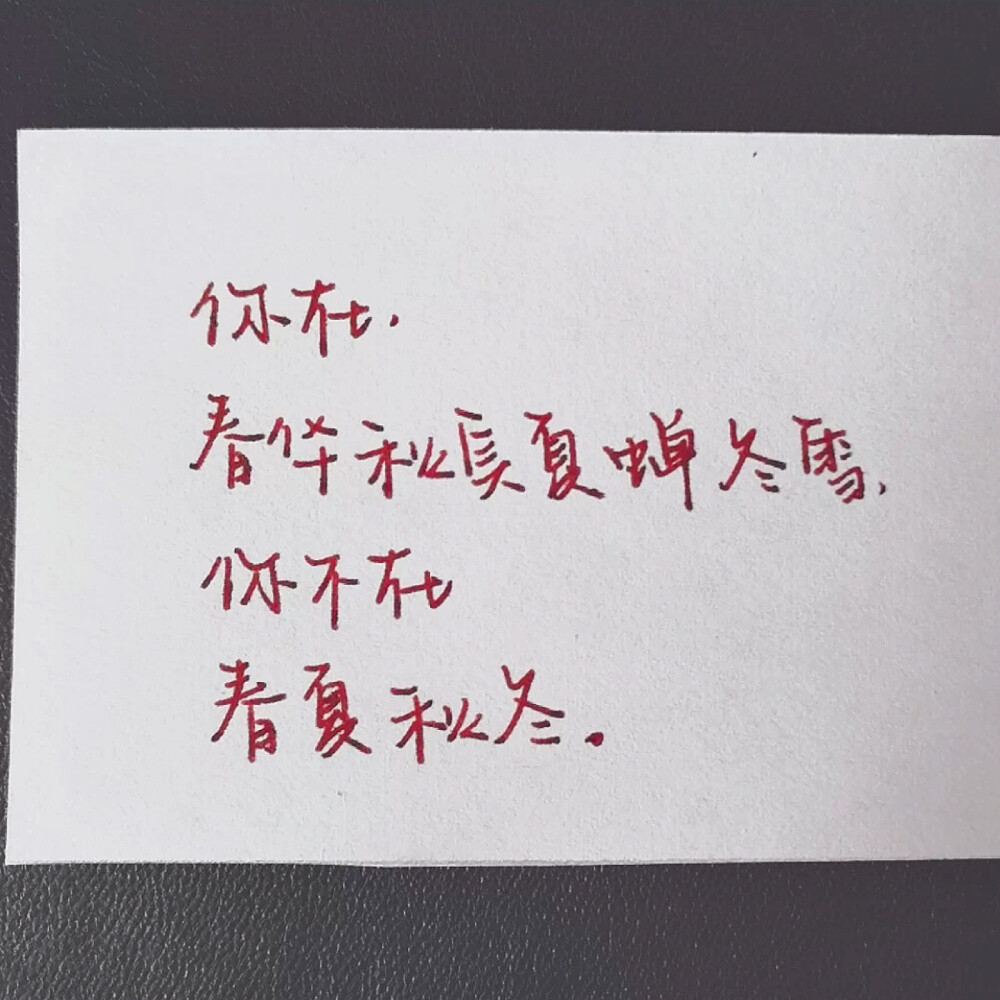 你在，
春华秋实夏蝉冬雪，
你不在
春夏秋冬。